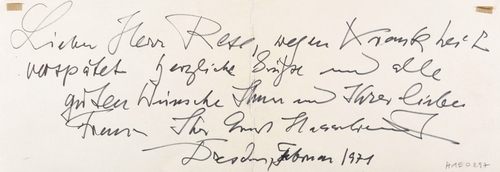 Lieber Herr Rese, wegen Krankheit
verspätet herzliche Grüße und alle
guten Wünsche Ihnen und Ihrer lieben
Frau Ihr Ernst
Dresden, Februar 1971
A 15 0297